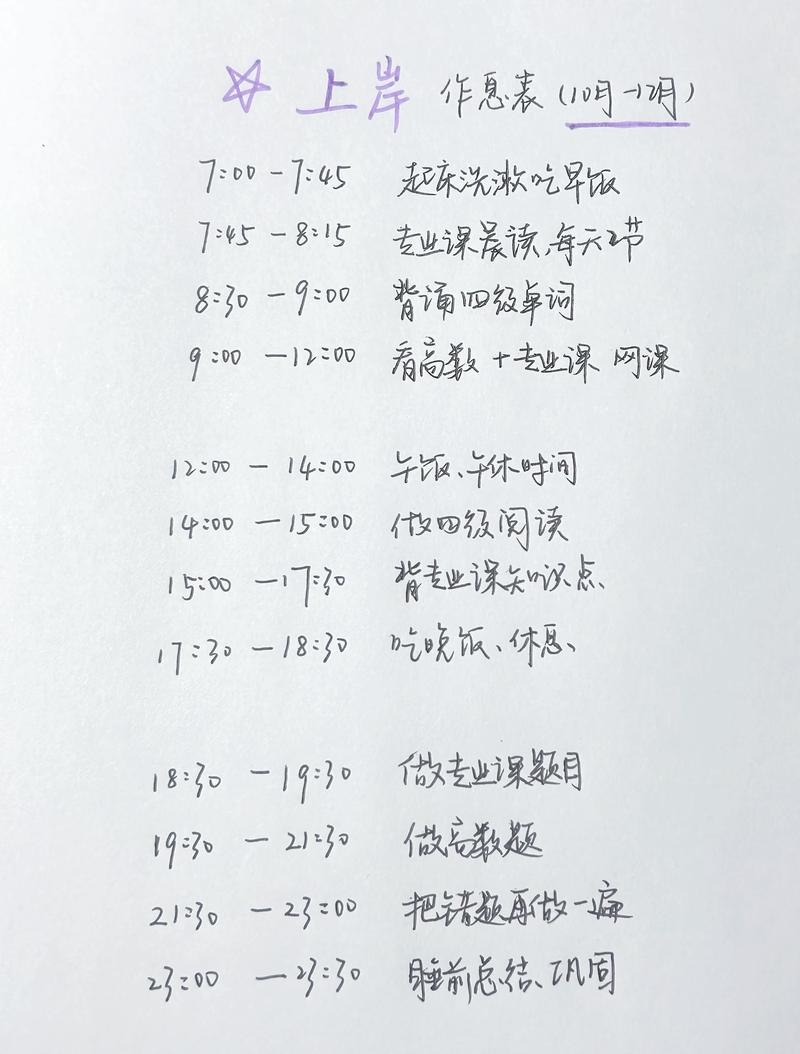 ☆ 上岸 作息表(10月-12月)
7:00 - 7:45 起床洗漱吃早饭
7:45 - 8:15 专业课晨读,每天2节
8:30 - 9:00 背诵四级单词
9:00 - 12:00 看高数+专业课 网课
12:00 - 14:00 午饭、午休时间
14:00 - 15:00 做四级阅读
15:00 - 17:30 背专业课知识点、
17:30 - 18:30 吃晚饭、休息、
18:30 - 19:30 做专业课题目
19:30 - 21:30 做高数题
21:30 - 23:00 把错题再做一遍
23:00 - 23:30 睡前总结、巩固